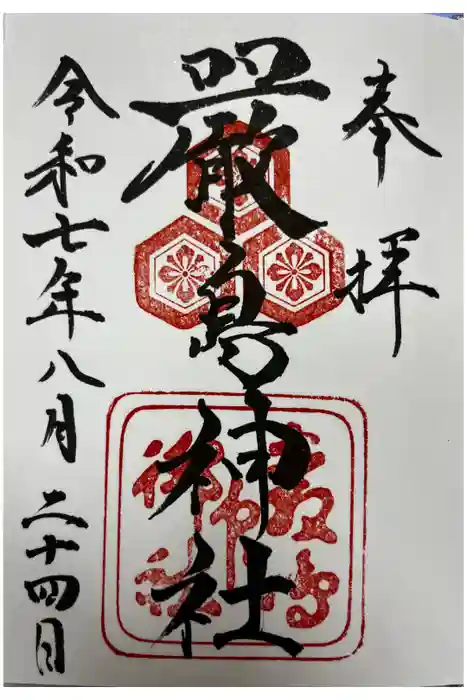 奉拝
嚴島神社
令和七年八月二十四日